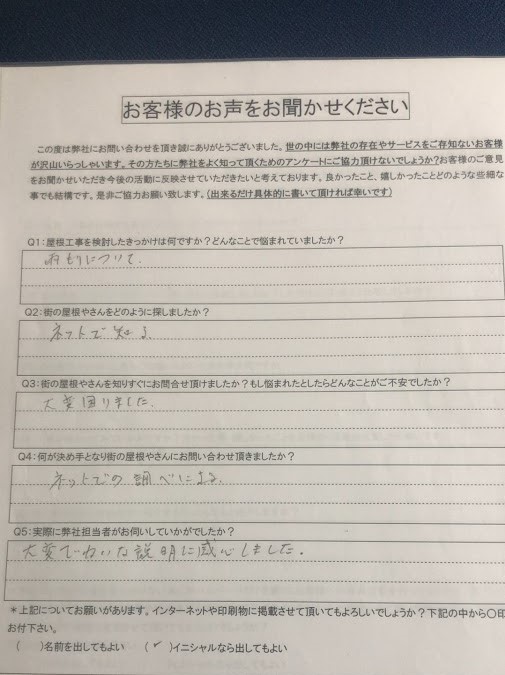 お客様のお声をお聞かせください
この度は弊社にお問い合わせを頂き誠にありがとうございました。世の中には弊社の存在やサービスをご存知ないお客様
が沢山いらっしゃいます。その方たちに弊社をよく知って頂くためのアンケートにご協力頂けないでしょうか?お客様のご意見
をお聞かせいただき今後の活動に反映させていただきたいと考えております。良かったこと、嬉しかったことどのような些細な
事でも結構です。是非ご協力お願い致します。(出来るだけ具体的に書いて頂ければ幸いです)
Q1:屋根工事を検討したきっかけは何ですか?どんなことで悩まれていましたか?
雨もりについて、
Q2:街の屋根やさんをどのように探しましたか?
ネットで知る
Q3:街の屋根やさんを知りすぐにお問合せ頂けましたか?もし悩まれたとしたらどんなことがご不安でしたか?
大変困りました、
Q4:何が決め手となり街の屋根やさんにお問い合わせ頂きましたか?
ネットでの調べによる、
Q5:実際に弊社担当者がお伺いしていかがでしたか?
大変ていねいな説明に感心しました。
*上記についてお願いがあります。インターネットや印刷物に掲載させて頂いてもよろしいでしょうか?下記の中から〇印
お付下さい。
( )名前を出してもよい (✓)イニシャルなら出してもよい